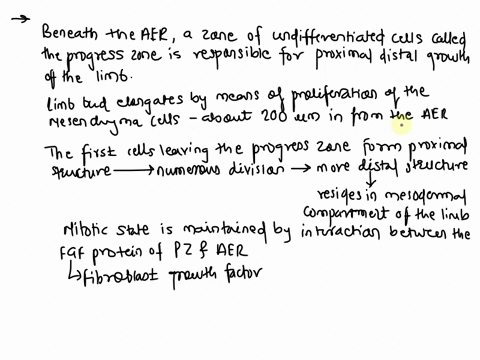 → Beneath the AER, a zone of undifferentiated cells called
the progress zone is responsible for proximal distal growth
of the limb.
limb bud elongates by means of proliferation of the
Mesenchyma cells - about 200 um in from the AER
The first cells leaving the progress zone form proximal
structure → numerous division → more distal structure
↓
resides in mesodermal
compartment of the limb
Mitotic state is maintained by interaction between the
FGF protein of PZ & AER
↳ fibroblast growth factor